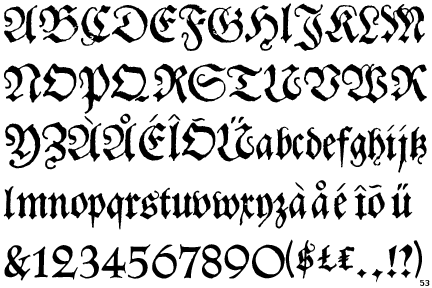 ABCDEFGHIJKLM
NOPQRSTUVWX
YZÀÅÉÎÕÜabcdefghijk
lmnopqrstuvwxyzàåéîõü
&1234567890($£€.,!?)
53